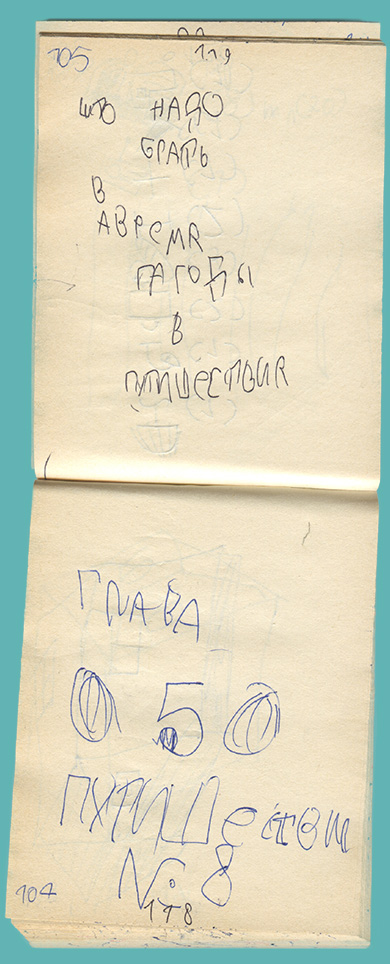 105
119
што НАДО
БРАТЬ
В
АВРЕМЯ
ПАГОДЫ
В
ПУТИШЕСТВИЯ
ГЛАВА
050
ПУТИШествии
№ 8
104
118